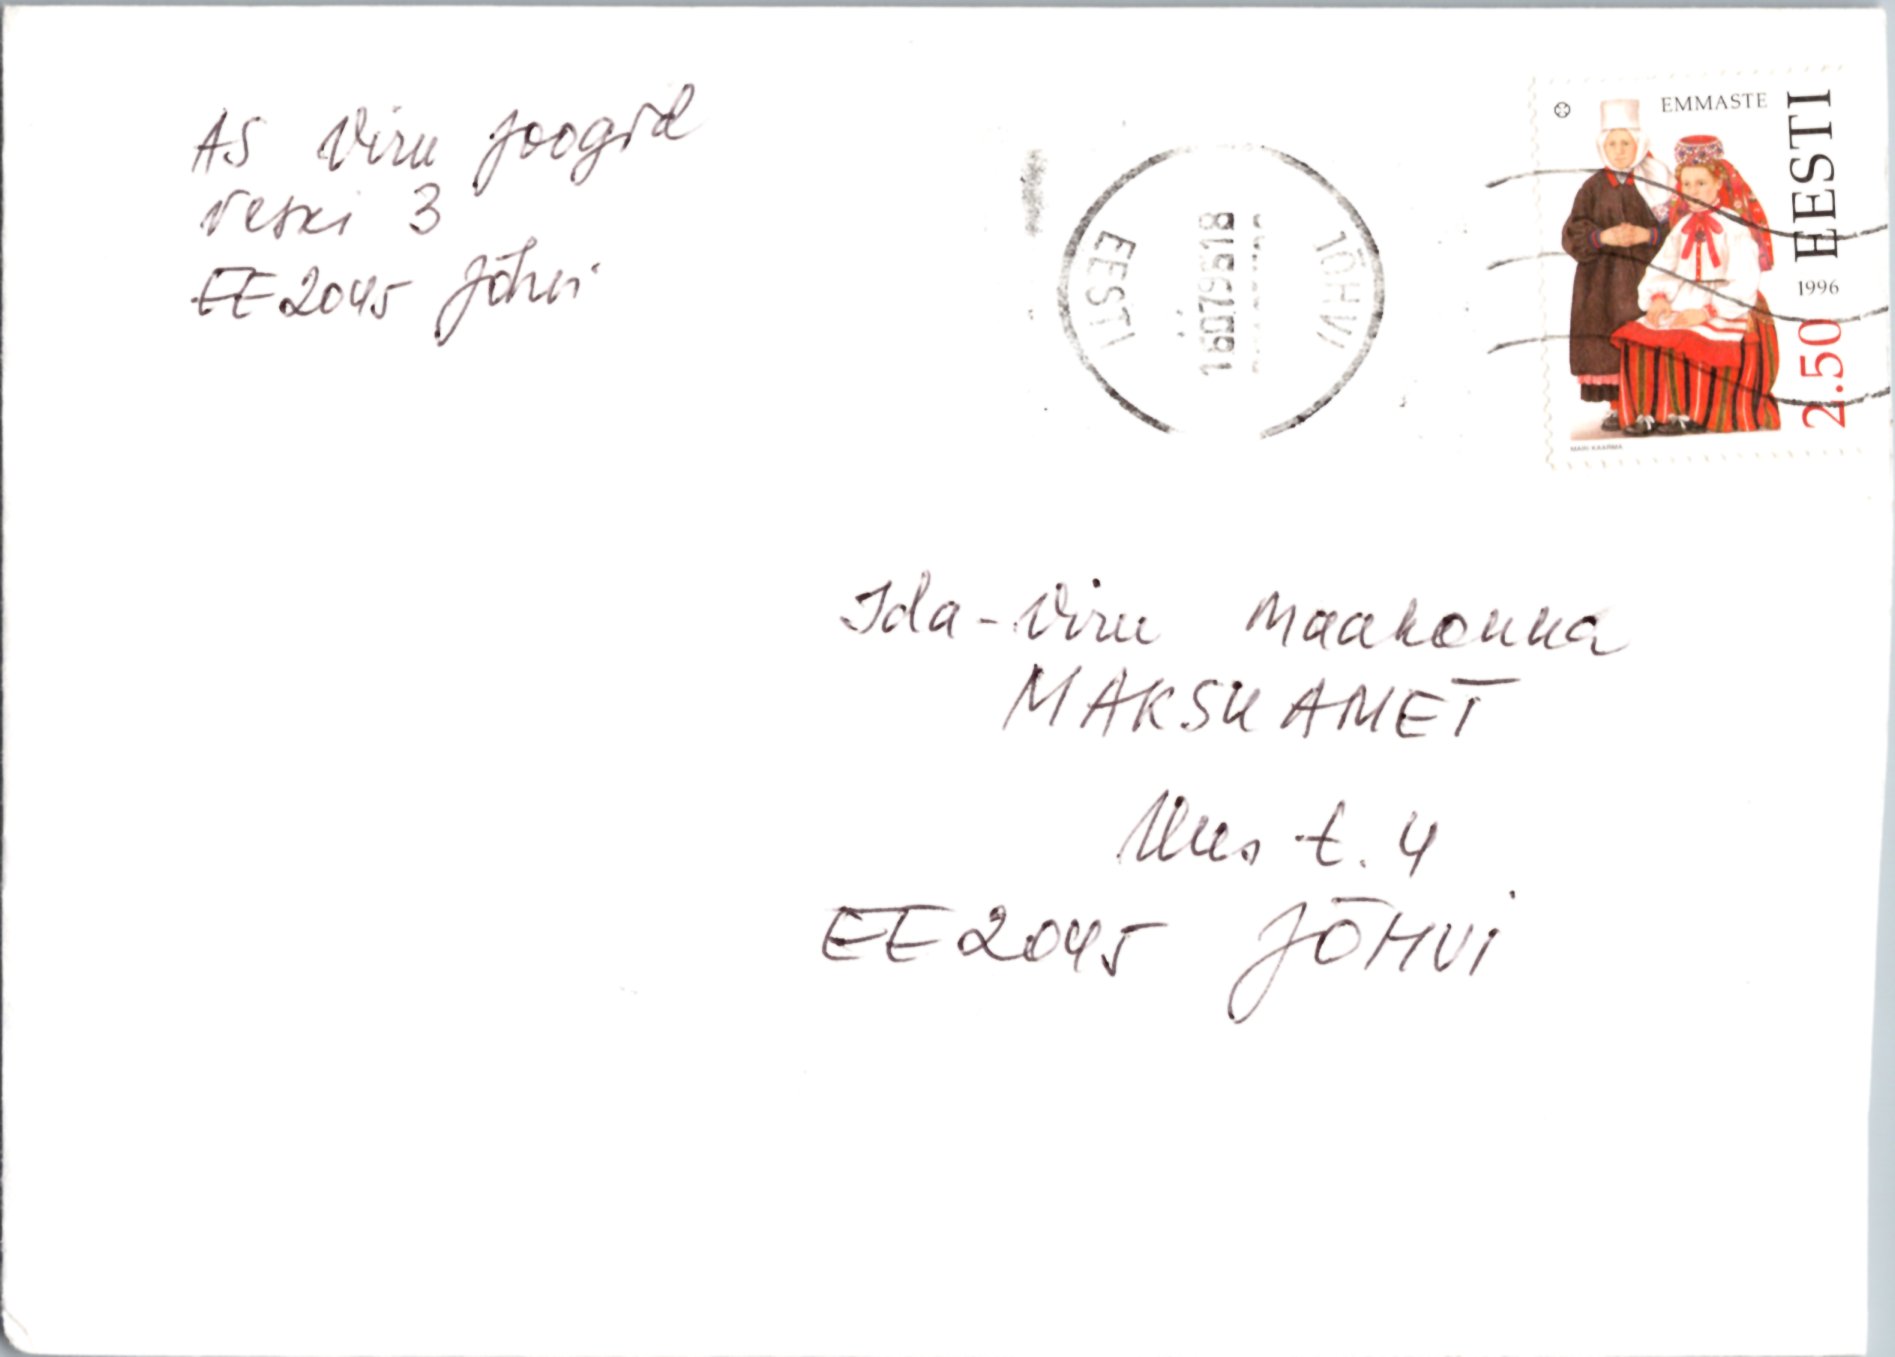 AS Viru Joogid
Veski 3
EE2045 Jõhvi
EESTI
JÕHVI
EMMASTE
EESTI
1996
2.50
MARI KAARMA
Ida-Viru Maakonna
MAKSUAMET
Uus t. 4
EE2045 JÕHVI